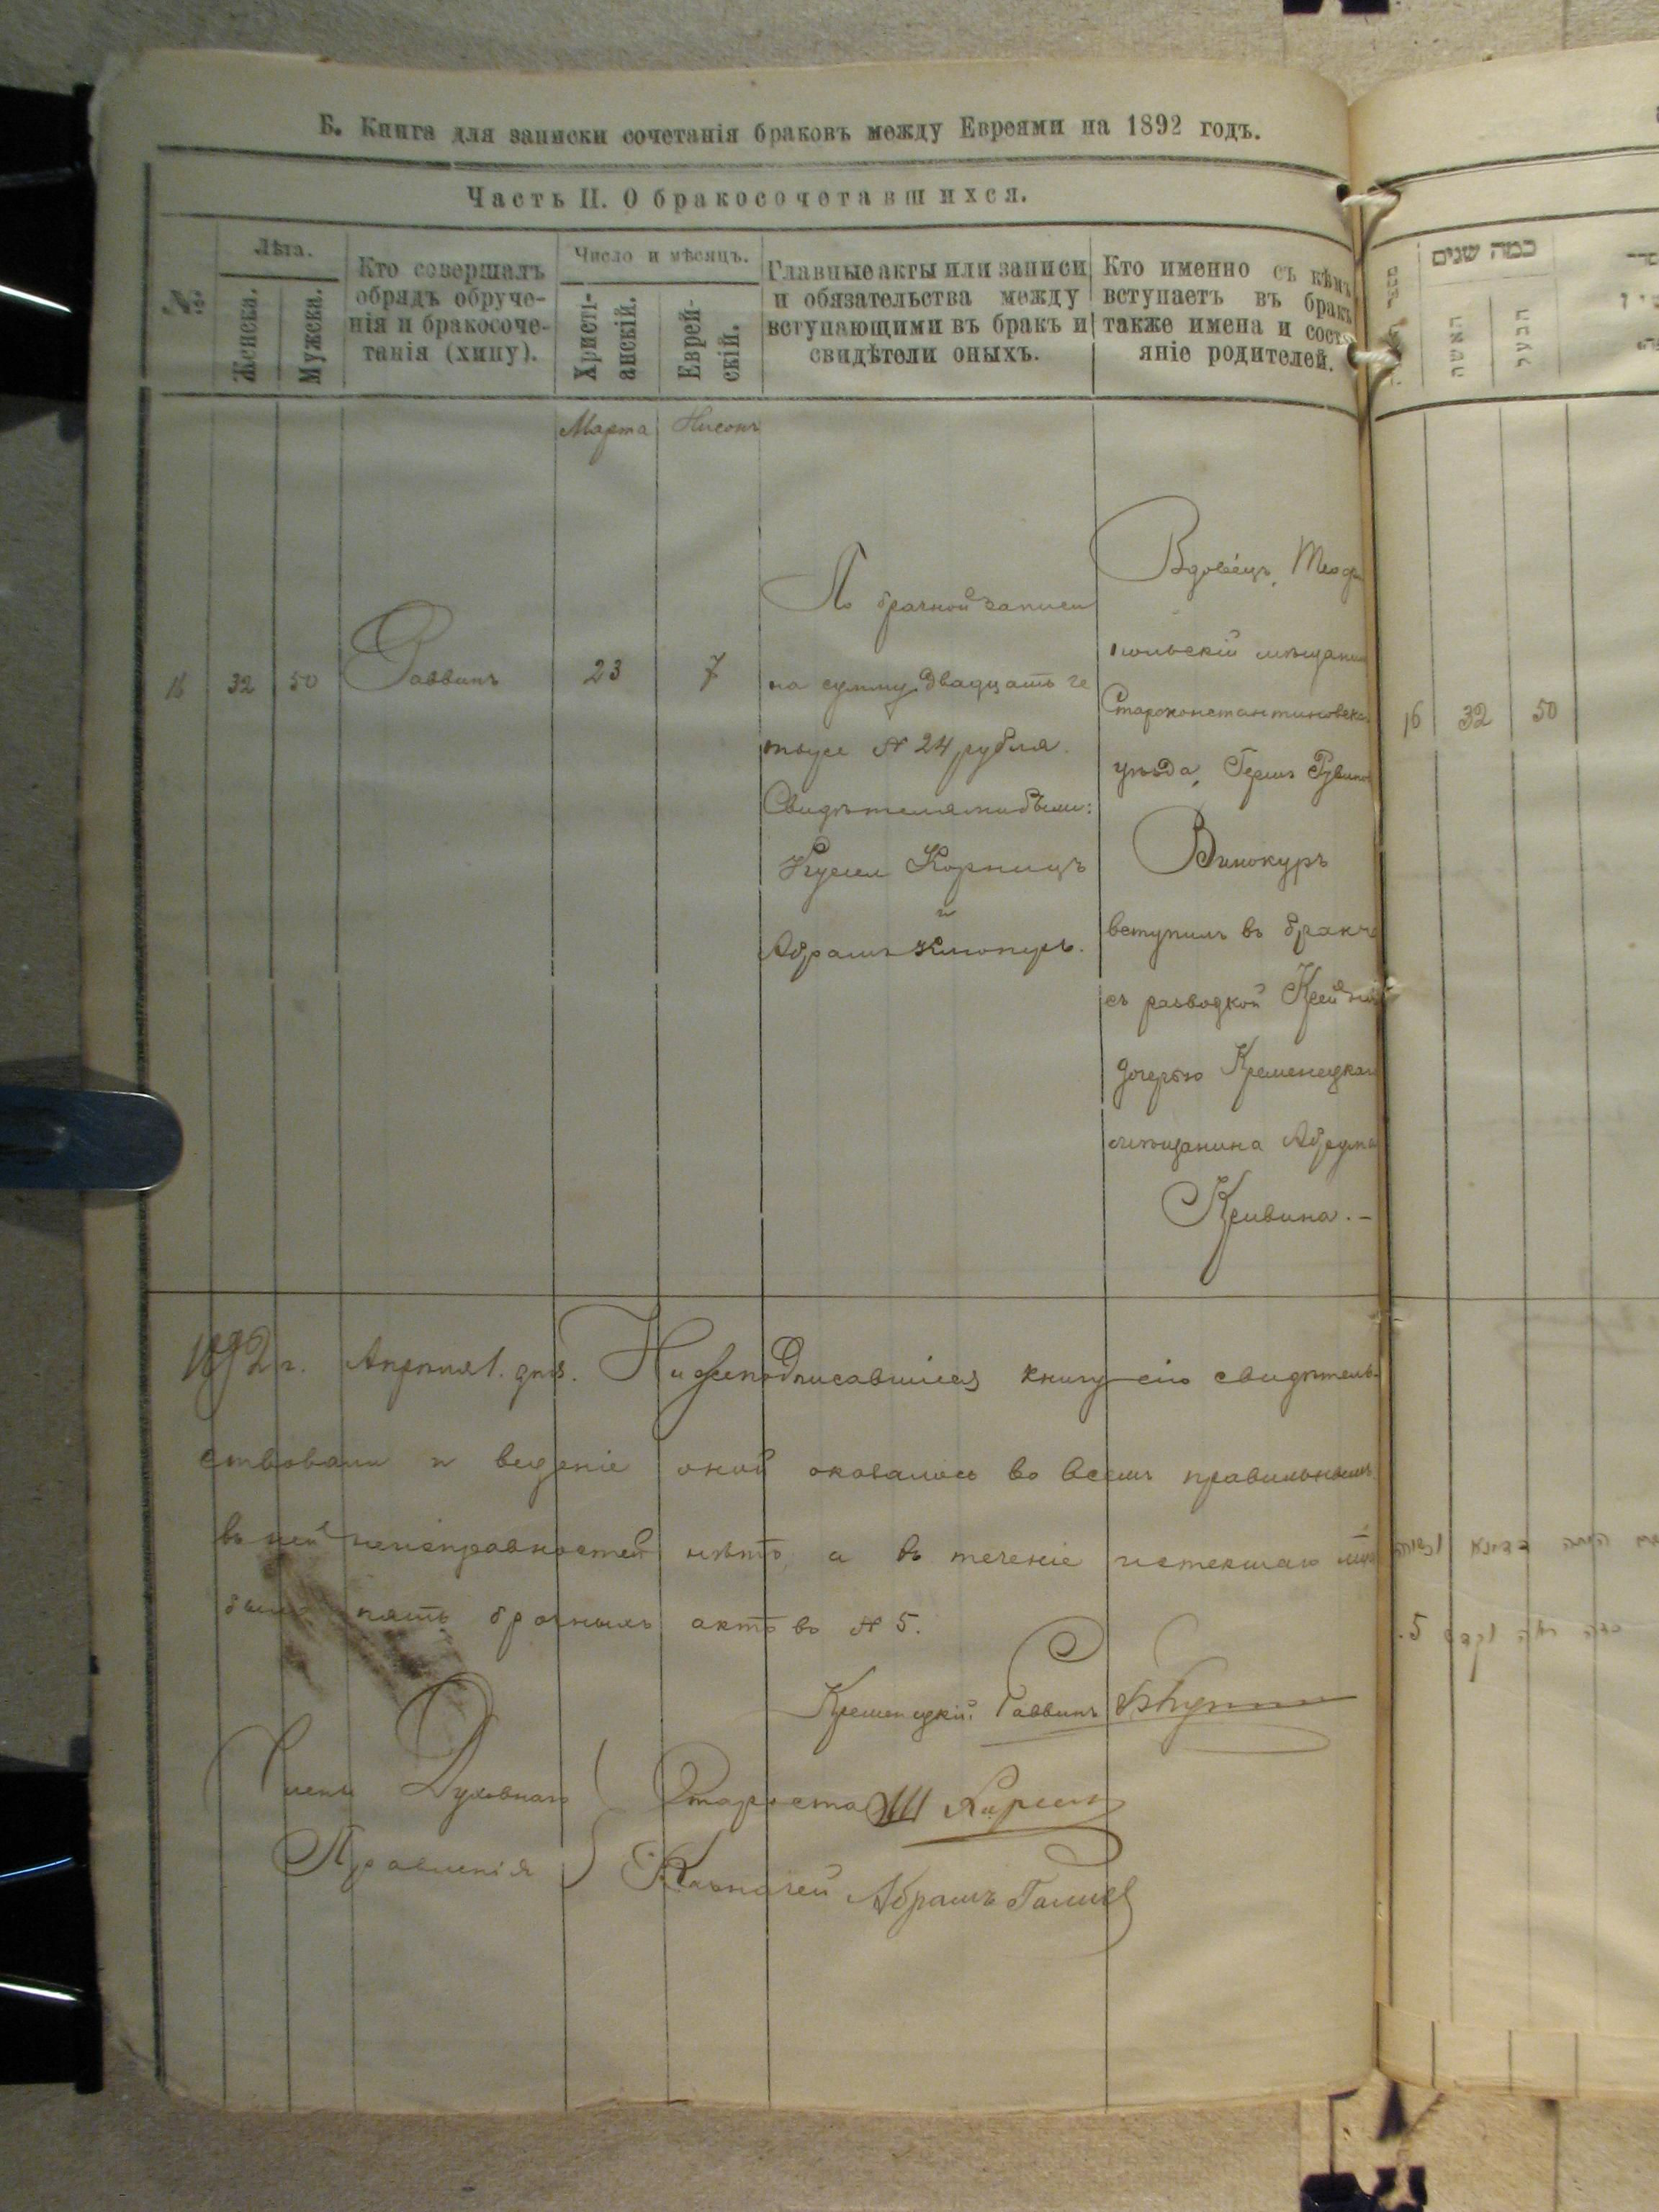 Б. Книга для записки сочетанія браковъ между Евреями на 1892 годъ.
Часть II. О бракосочетавшихся.
№
Лѣта.
Женска.
Мужска.
Кто совершалъ
обрядъ обруче-
нія и бракосоче-
танія (хипу).
Число и мѣсяцъ.
Христі-
анскій.
Еврей-
скій.
Главные акты или записи
и обязательства между
вступающими въ бракъ и
свидѣтели оныхъ.
Кто именно съ кѣмъ
вступаетъ въ бракъ
также имена и состо
яніе родителей.
כמה שנים
האשה
הבעל
Марта
Нисонъ
16
32
50
Раввинъ
23
7
По брачной записи
на сумму двадцать че
тыре № 24 рубля.
Свидѣтелями были:
Кусил Корницъ
и
Абрамъ
Вдовецъ, Теофи
польскій мѣщанин
Староконстантиновска
уѣзда, Гершъ Рувинов
Винокуръ
вступилъ въ бракъ
съ разводкой
дочерью Кременецкаго
мѣщанина
Кривина. -
16
32
50
1892 г. Апрѣля 1. дня. Нижеподписавшіеся книгу сію свидѣтель-
ствовали и веденіе оной оказалось во всемъ правильнымъ
въ ней неисправностей нѣтъ, а въ теченіе истекшаго
было пять брачныхъ актовъ № 5.
5.
Кременецкій Раввинъ
Члены Духовнаго
Правленія
Староста Ш
Казначей Абрамъ